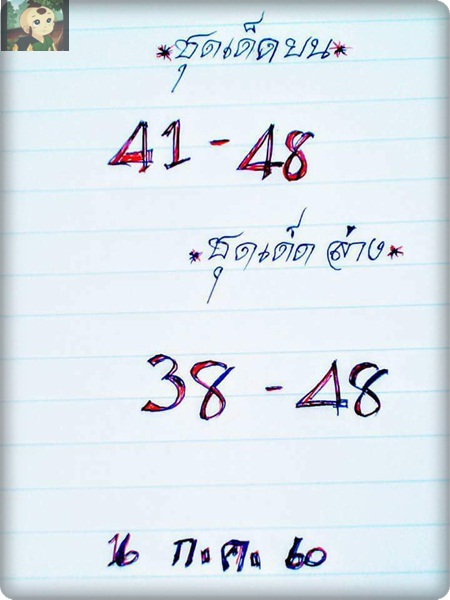 *ชุดเด็ดบน*
41 - 48
*ชุดเด็ด ล่าง*
38 - 48
16 ก.ค. 60